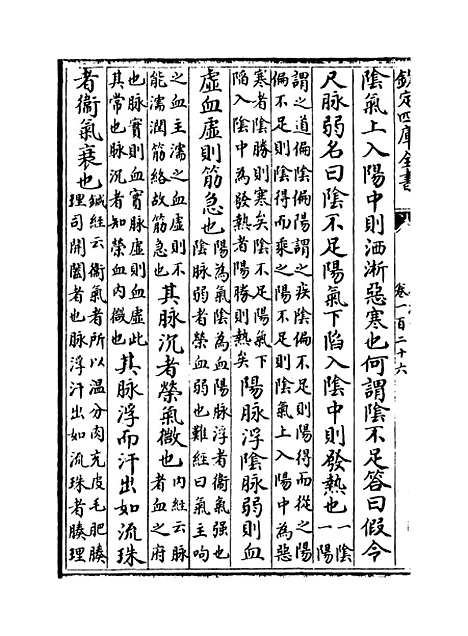 欽定四庫全書
卷一百二十六
陰氣上入陽中則洒淅惡寒也何謂陰不足答曰假令
尺脉弱名曰陰不足陽氣下陷入陰中則發熱也
一陰
一陽
謂之道偏陰偏陽謂之疾陰偏不足則陽得而從之陽
偏不足則陰得而乘之陽不足則陰氣上入陽中為惡
寒者陰勝則寒矣陰不足陽氣下
陷入陰中為發熱者陽勝則熱矣
陽脉浮陰脉弱則血
虛血虛則筋急也
陽為氣陰為血陽脉浮者衞氣強也
陰脉弱者榮血弱也難經曰氣主呴
之血主濡之血虛則不
能濡潤筋絡故筋急也
其脉沉者榮氣微也
內經云脉
者血之府
也脉實則血實脉虛則血虛此
其常也脉沉者知榮血內微也
其脉浮而汗出如流珠
者衞氣衰也
鍼經云衞氣者所以溫分肉充皮毛肥腠
理司開闔者也脉浮汗出如流珠者腠理